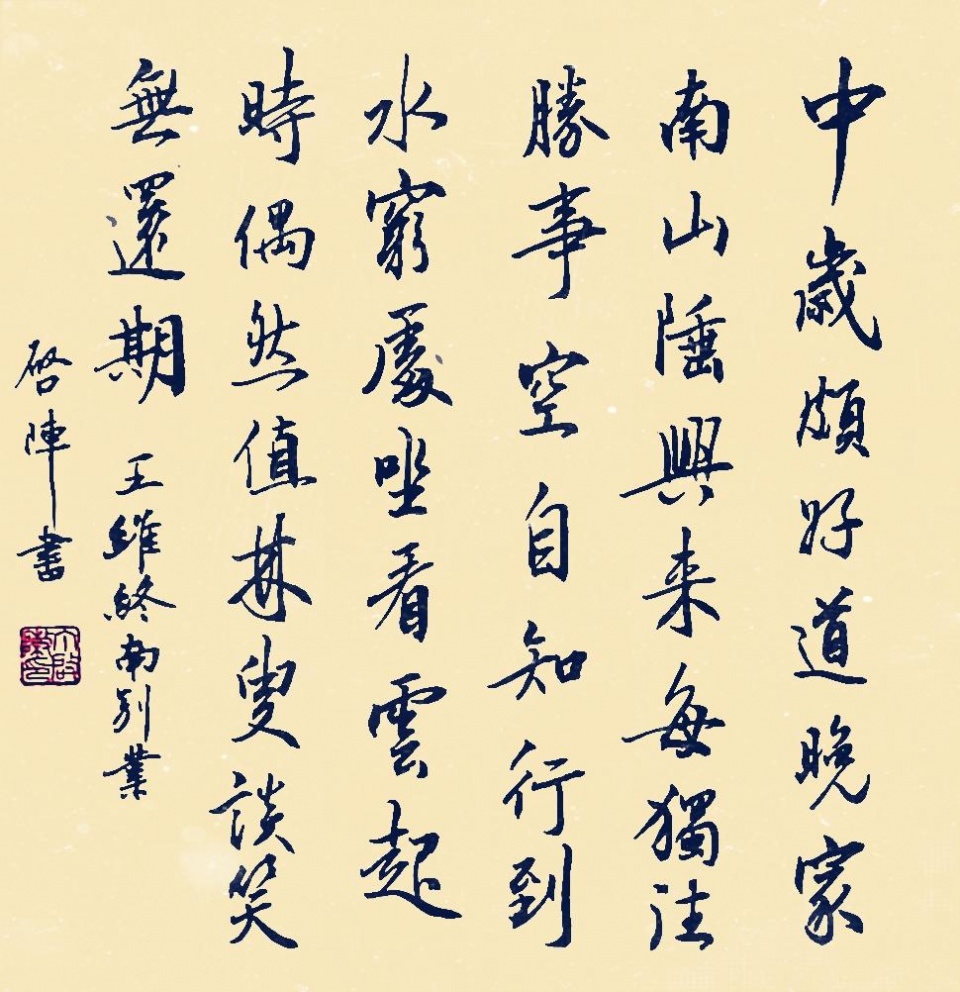 中歲頗好道晚家
南山陲興来每獨往
勝事空自知行到
水窮處坐看雲起
時偶然值林叟談笑
無還期 王維終南別業
啓陣書